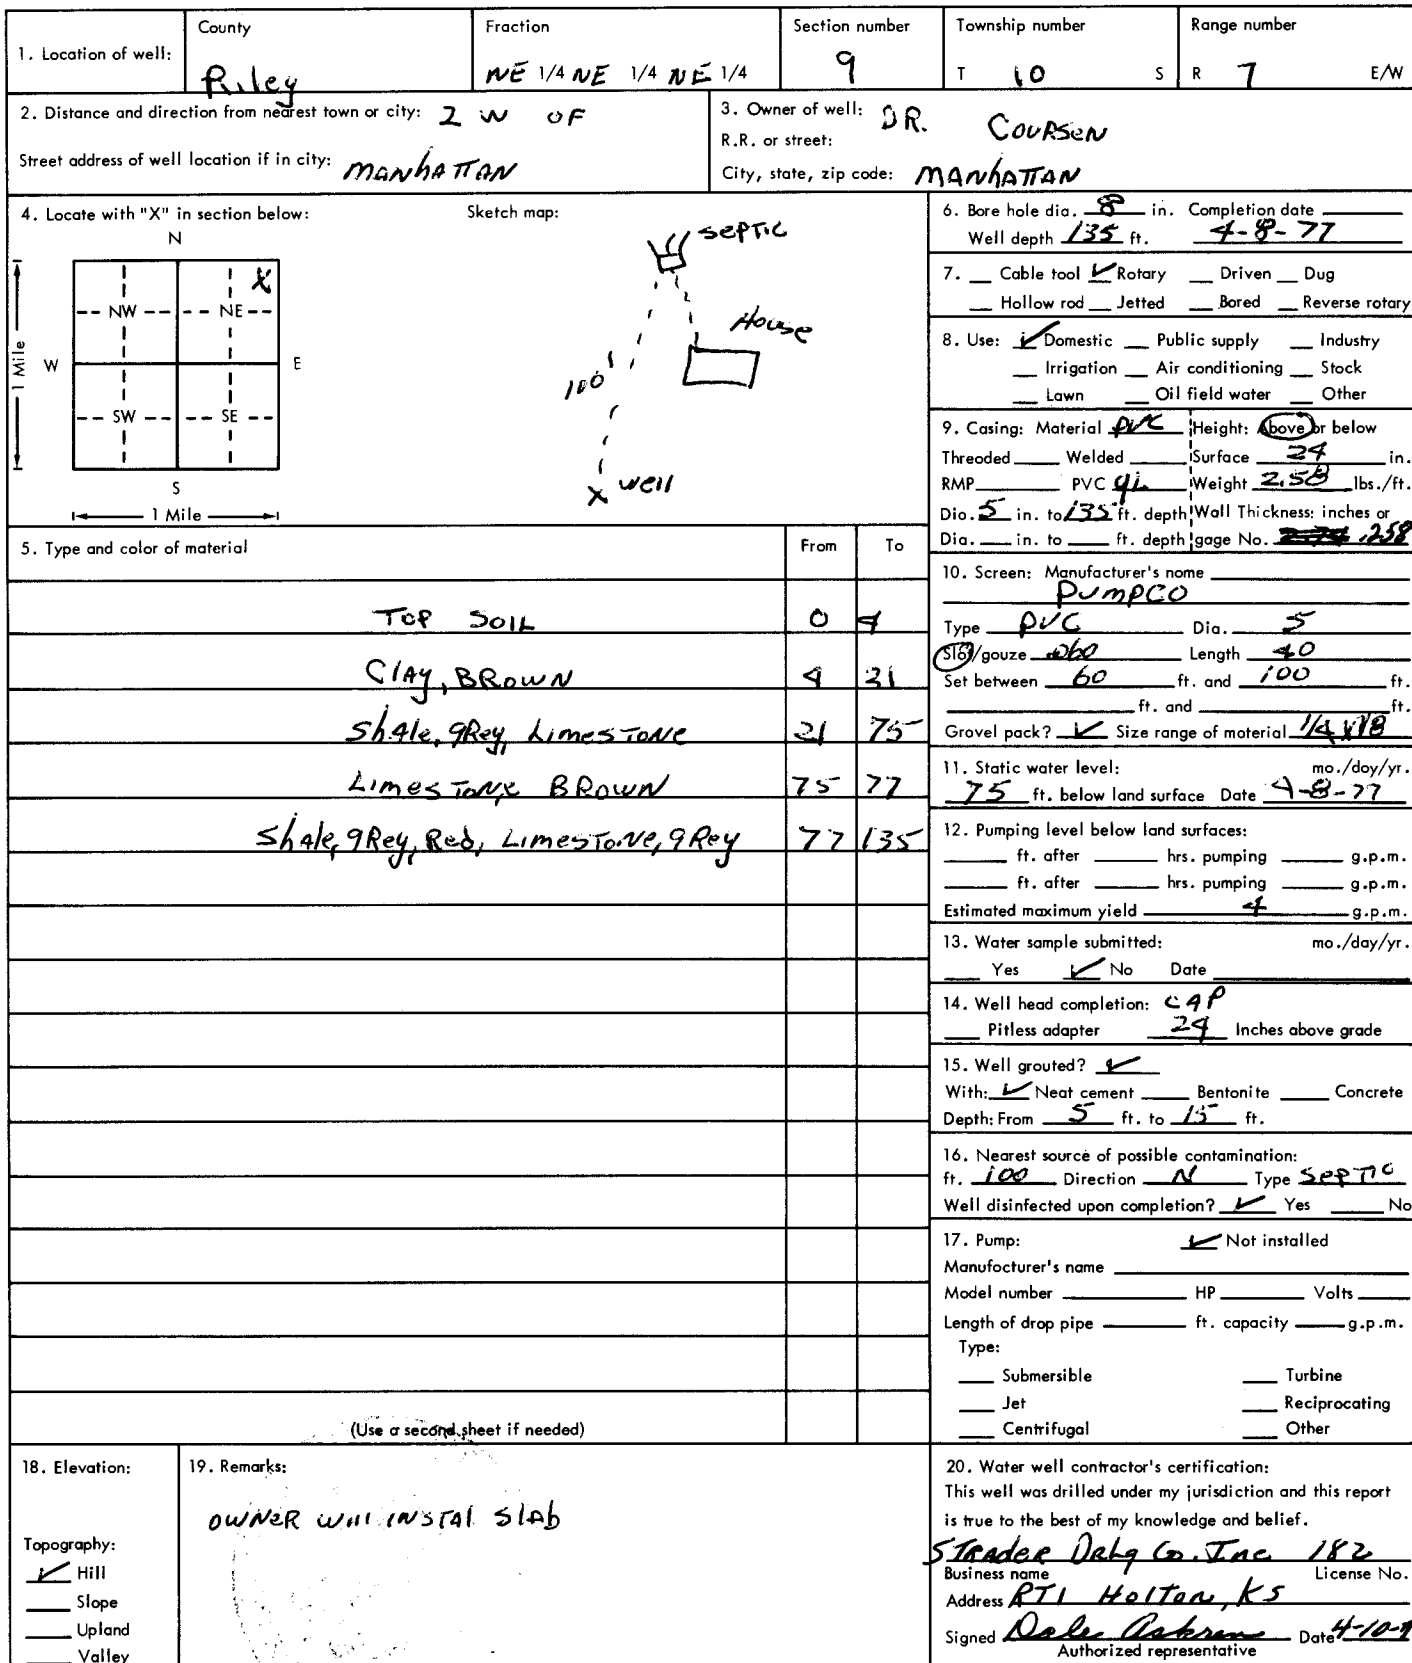 1. Location of well:
County
Riley
Fraction
NE 1/4 NE 1/4 NE 1/4
Section number
9
Township number
T 10 S
Range number
R 7 E/W
2. Distance and direction from nearest town or city: 2 W OF
Street address of well location if in city: MANHATTAN
3. Owner of well: DR. COURSEN
R.R. or street:
City, state, zip code: MANHATTAN
4. Locate with "X" in section below:
N
X
NW NE
W E
SW SE
S
1 Mile
1 Mile
Sketch map:
septic
House
100'
X well
5. Type and color of material From To
TOP SOIL 0 4
Clay, BROWN 4 21
Shale, gRey, LimesTone 21 75
LimesTone BROWN 75 77
Shale, gRey, Red, LimesTone, gRey 77 135
(Use a second sheet if needed)
6. Bore hole dia. 8 in. Completion date
Well depth 135 ft. 4-8-77
7. Cable tool ✓ Rotary Driven Dug
Hollow rod Jetted Bored Reverse rotary
8. Use: ✓ Domestic Public supply Industry
Irrigation Air conditioning Stock
Lawn Oil field water Other
9. Casing: Material PVC Height: Above or below
Threoded Welded Surface 24 in.
RMP PVC Weight 2.58 lbs./ft.
Dio. 5 in. to 135 ft. depth Wall Thickness: inches or
Dia. in. to ft. depth gage No. .258
10. Screen: Manufacturer's name
PUMPCO
Type PVC Dia. 5
Slot/gouze .060 Length 40
Set between 60 ft. and 100 ft.
ft. and ft.
Grovel pack? ✓ Size range of material 1/4 x 1/8
11. Static water level: mo./doy/yr.
75 ft. below land surface Date 4-8-77
12. Pumping level below land surfaces:
ft. after hrs. pumping g.p.m.
ft. after hrs. pumping g.p.m.
Estimated maximum yield 4 g.p.m.
13. Water sample submitted: mo./day/yr.
Yes ✓ No Date
14. Well head completion: CAP
Pitless adapter 24 Inches above grade
15. Well grouted? ✓
With: ✓ Neat cement Bentonite Concrete
Depth: From 5 ft. to 15 ft.
16. Nearest source of possible contamination:
ft. 100 Direction N Type SepTIC
Well disinfected upon completion? ✓ Yes No
17. Pump: ✓ Not installed
Manufocturer's name
Model number HP Volts
Length of drop pipe ft. capacity g.p.m.
Type:
Submersible Turbine
Jet Reciprocating
Centrifugal Other
18. Elevation:
Topography:
✓ Hill
Slope
Upland
Valley
19. Remarks:
OWNER Will INSTAl SlAb
20. Water well contractor's certification:
This well was drilled under my jurisdiction and this report
is true to the best of my knowledge and belief.
STRADER DRLg Co. Inc 182
Business name License No.
Address RT1 HolTon, KS
Signed Dale Date 4-10-7
Authorized representative